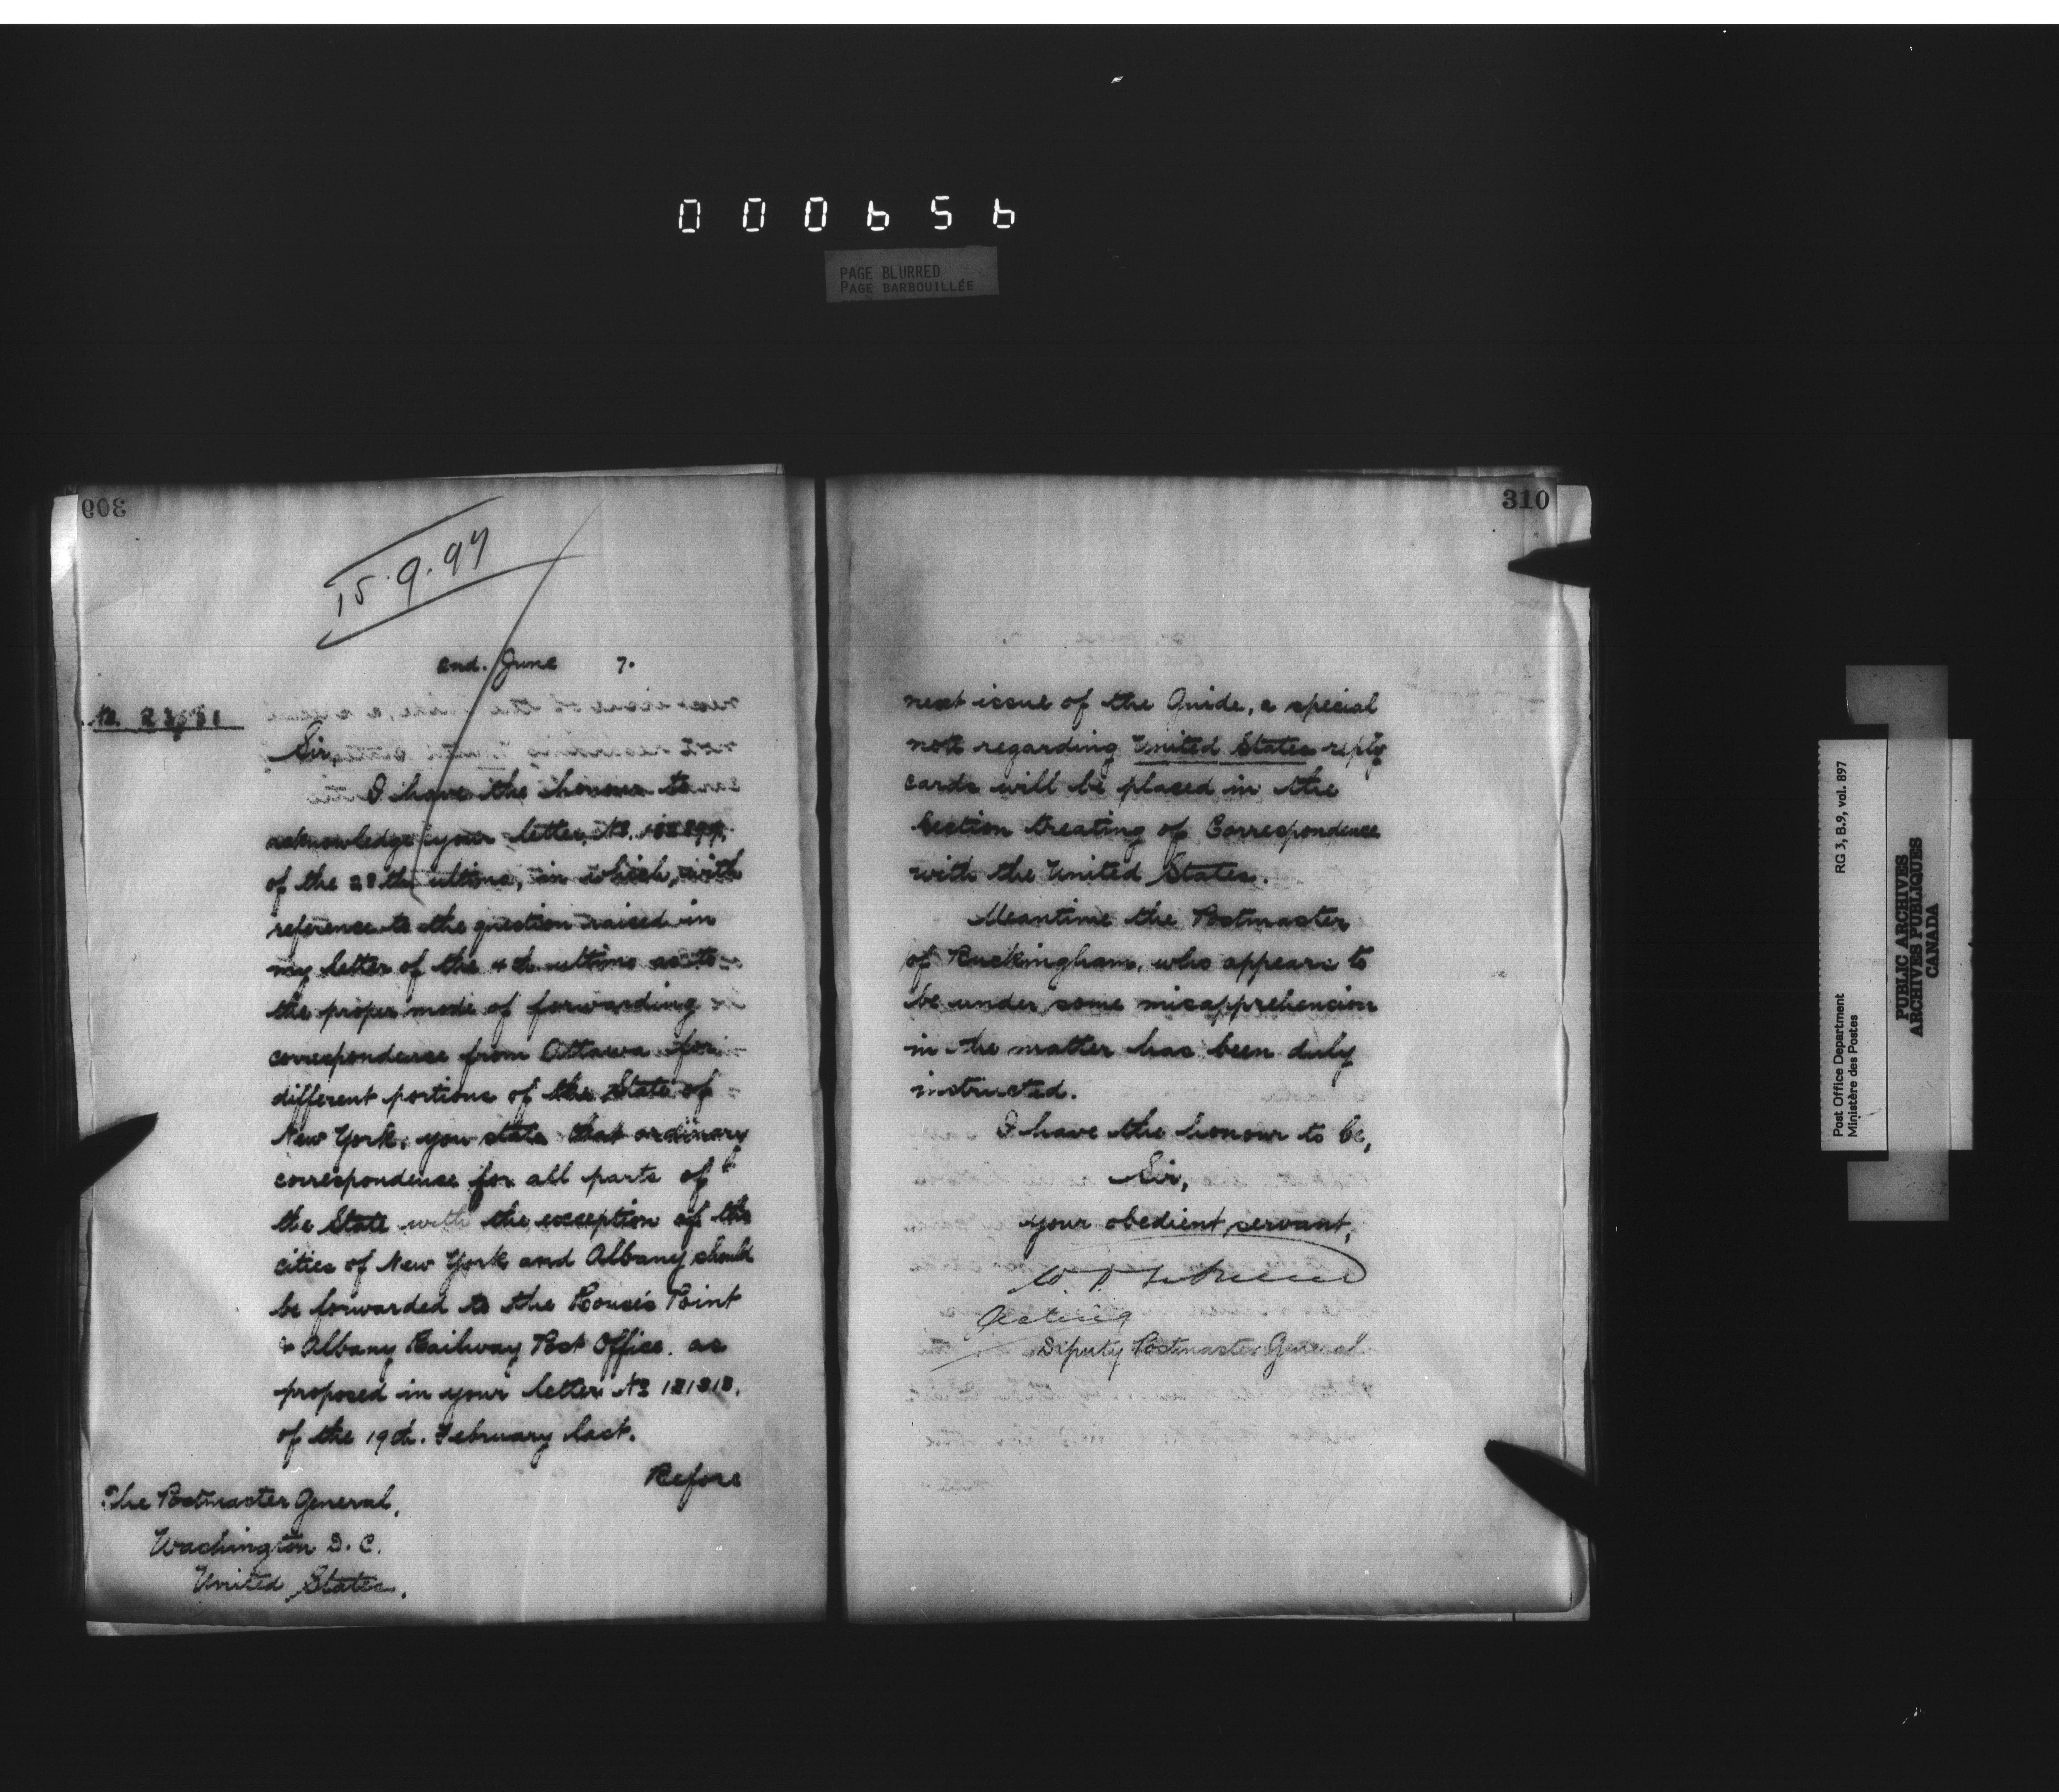 000656
PAGE BLURRED
PAGE BARBOUILLÉE
309
15.9.97
2nd. June 7.
Sir,
I have the honour to
acknowledge your letter, No.
of the 28th ultimo, in which, with
reference to the question raised in
my letter of the 4th ultimo as to
the proper mode of forwarding
correspondence from Ottawa for
different portions of the State of
New York, you state that ordinary
correspondence for all parts of
the State with the exception of the
cities of New York and Albany should
be forwarded to the Rouse's Point
& Albany Railway Post Office, as
proposed in your letter No 121818,
of the 19th. February last.
Before
The Postmaster General,
Washington D. C.
United States.
310
next issue of the Guide, a special
note regarding United States reply
cards will be placed in the
Section treating of Correspondence
with the United States.
Meantime the Postmaster
of Buckingham, who appears to
be under some misapprehension
in the matter has been duly
instructed.
I have the honour to be,
Sir,
your obedient servant,
Acting
Deputy Postmaster General
Post Office Department
Ministère des Postes
RG 3, B.9, vol. 897
PUBLIC ARCHIVES
ARCHIVES PUBLIQUES
CANADA